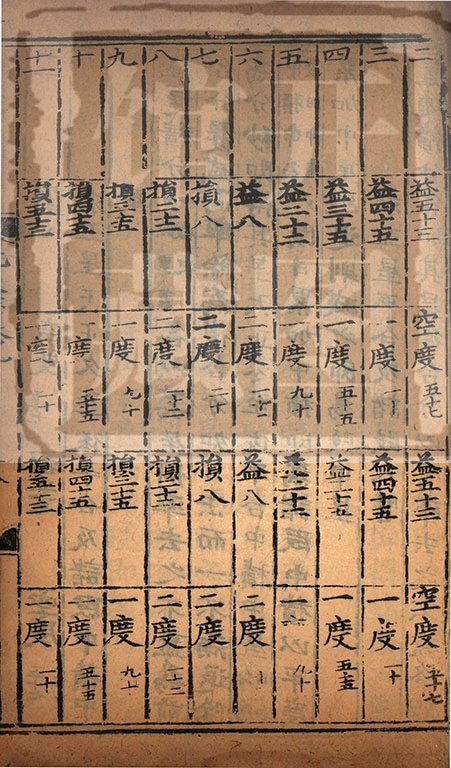 二 益五十三 空度五十七 益五十三 空度五十七
三 益四十五 一度一十 益四十五 一度一十
四 益三十五 一度五十五 益三十五 一度五十五
五 益二十二 一度九十 益二十二 一 九十
六 益八 二度一十二 益八 二度
七 損八 二度二十 損八 二度
八 損二十二 二度一十二 損二十二 二度一十二
九 損三十五 一度九十 損三十五 一度九十
十 損四十五 一度五十五 損四十五 一度五十五
十一 損五十三 一度一十 損五十三 一度一十